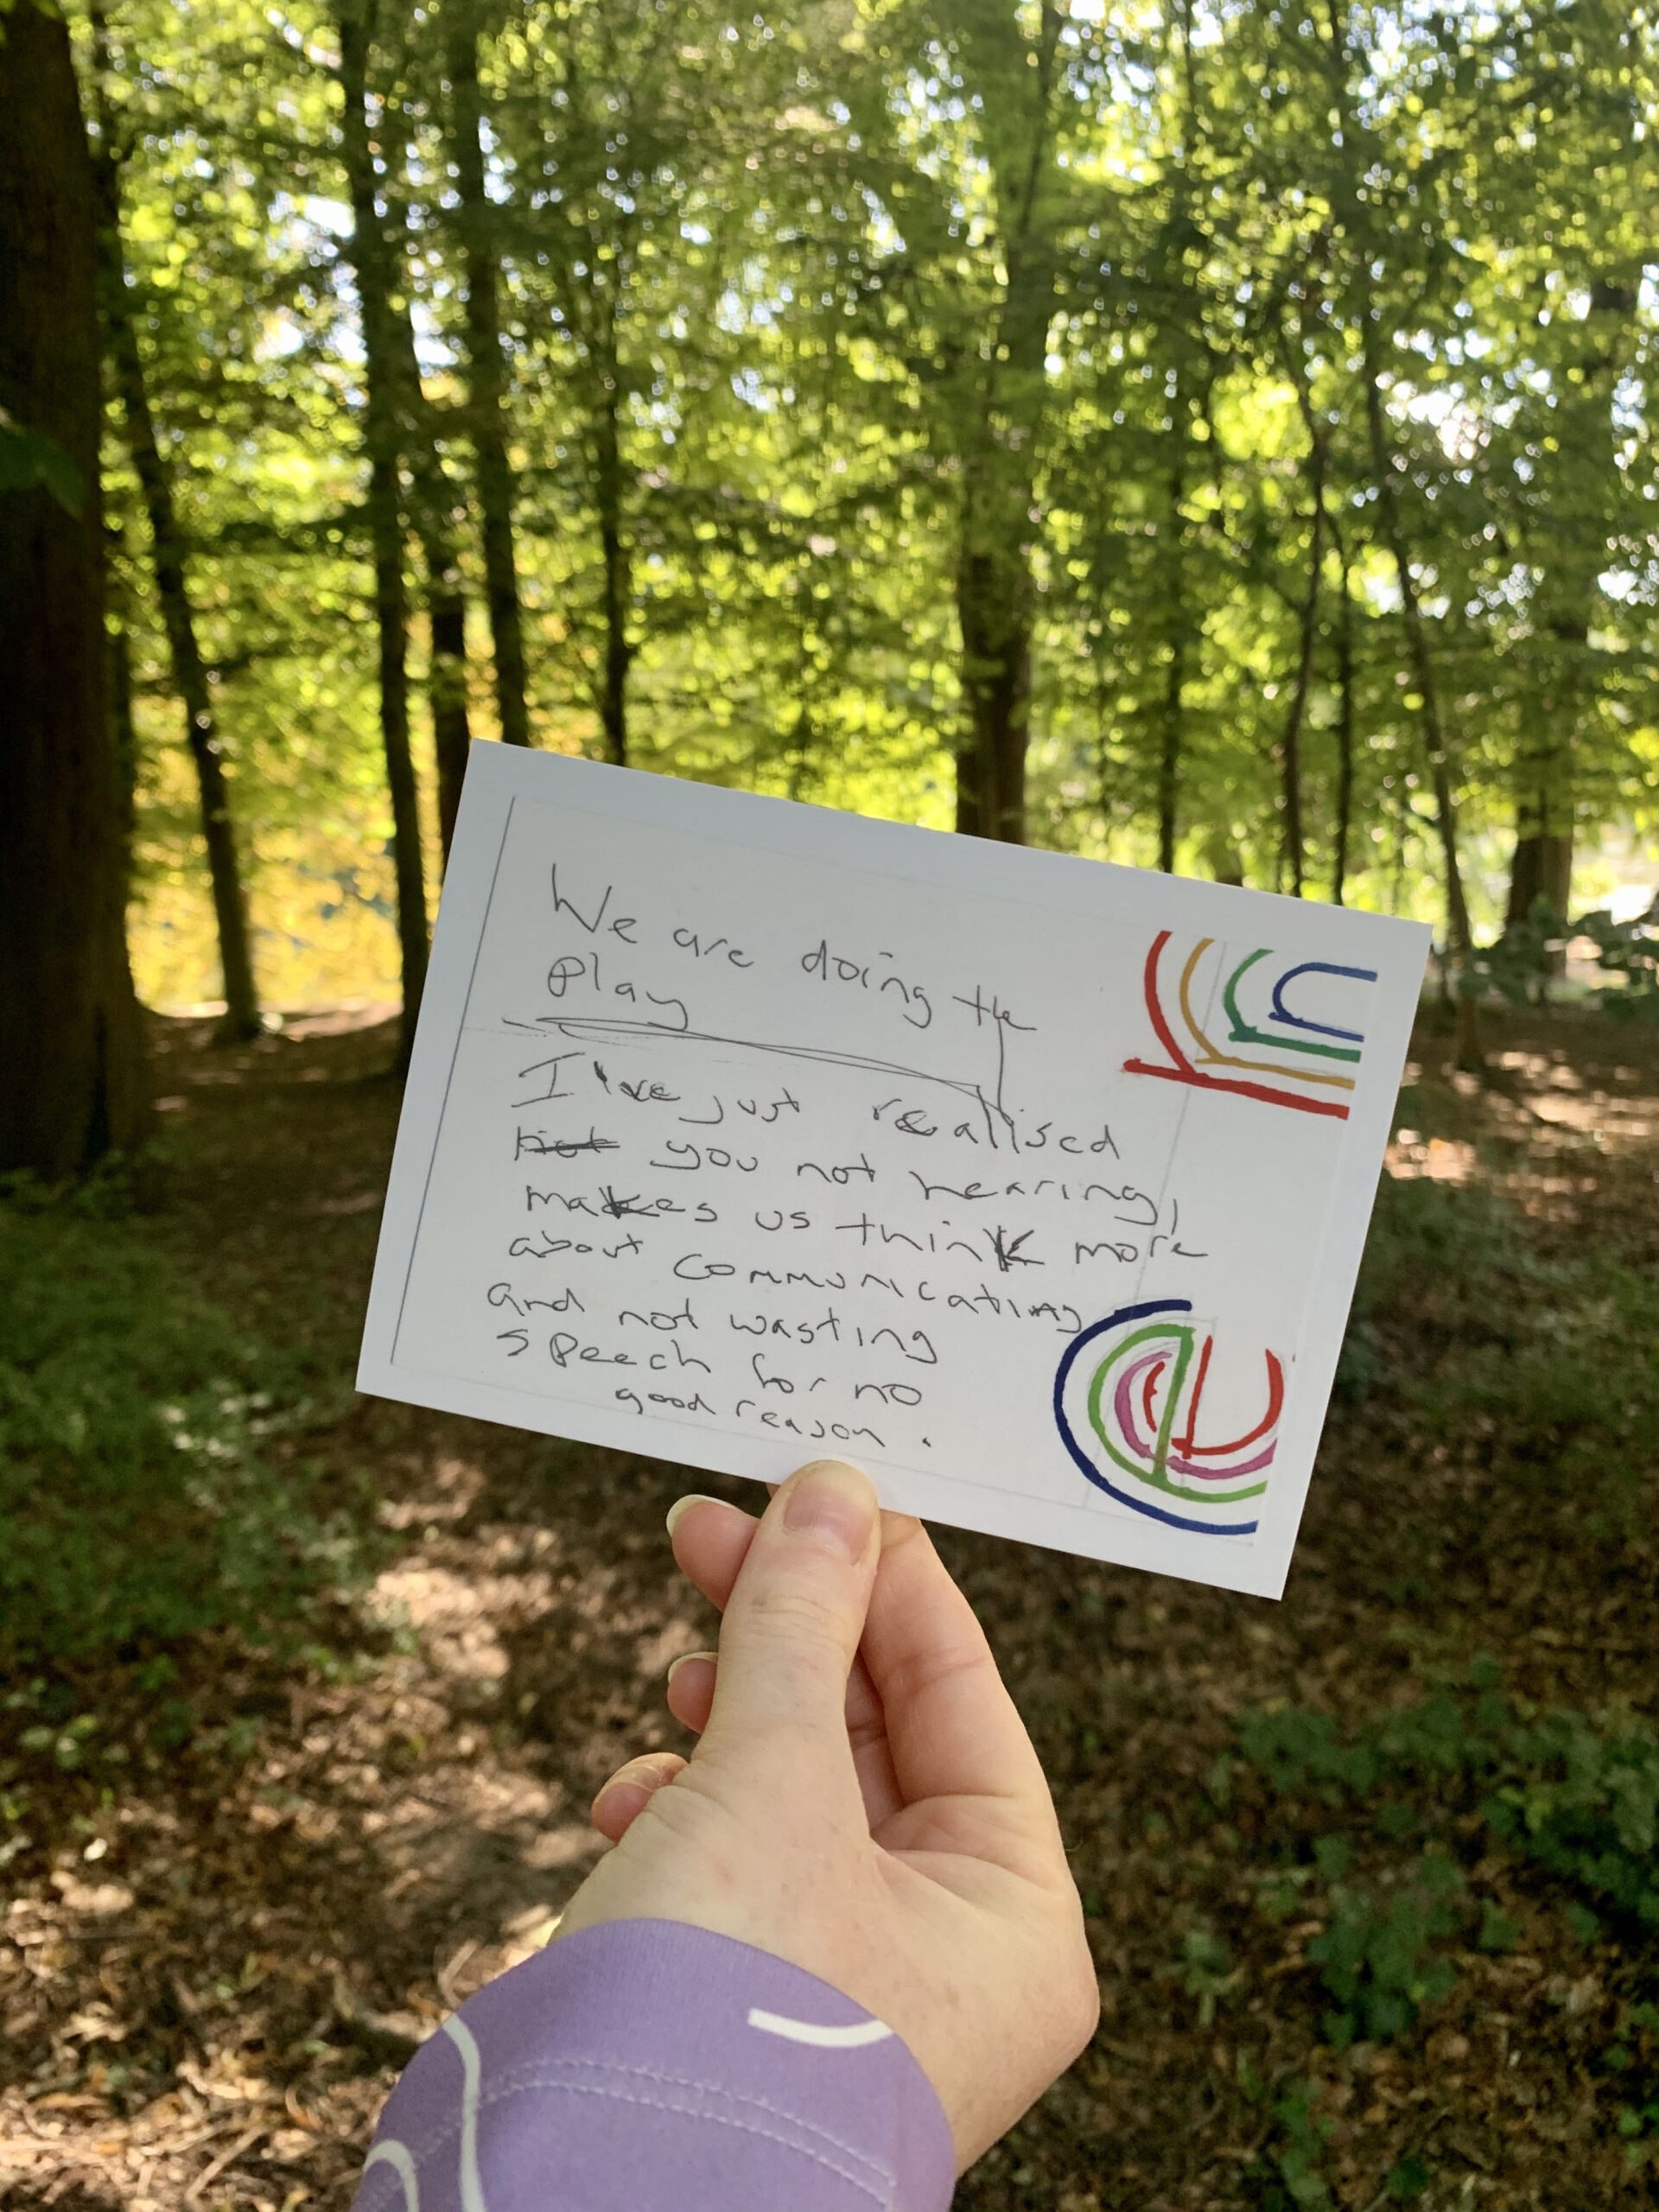 We are doing the
Play
I've just realised
you not hearing,
makes us think more
about communicating
and not wasting
speech for no
good reason.